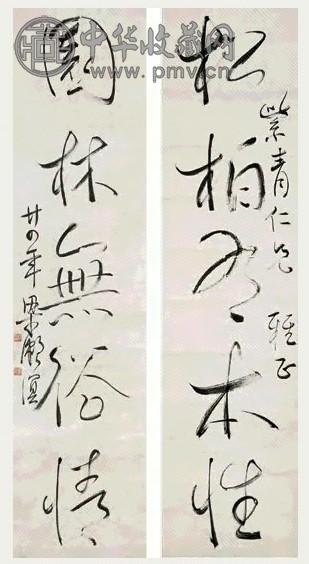 中华收藏网
www.pmv.cn
紫青仁兄 雅正
松柏有本性
園林無俗情
廿四年 梁寒操